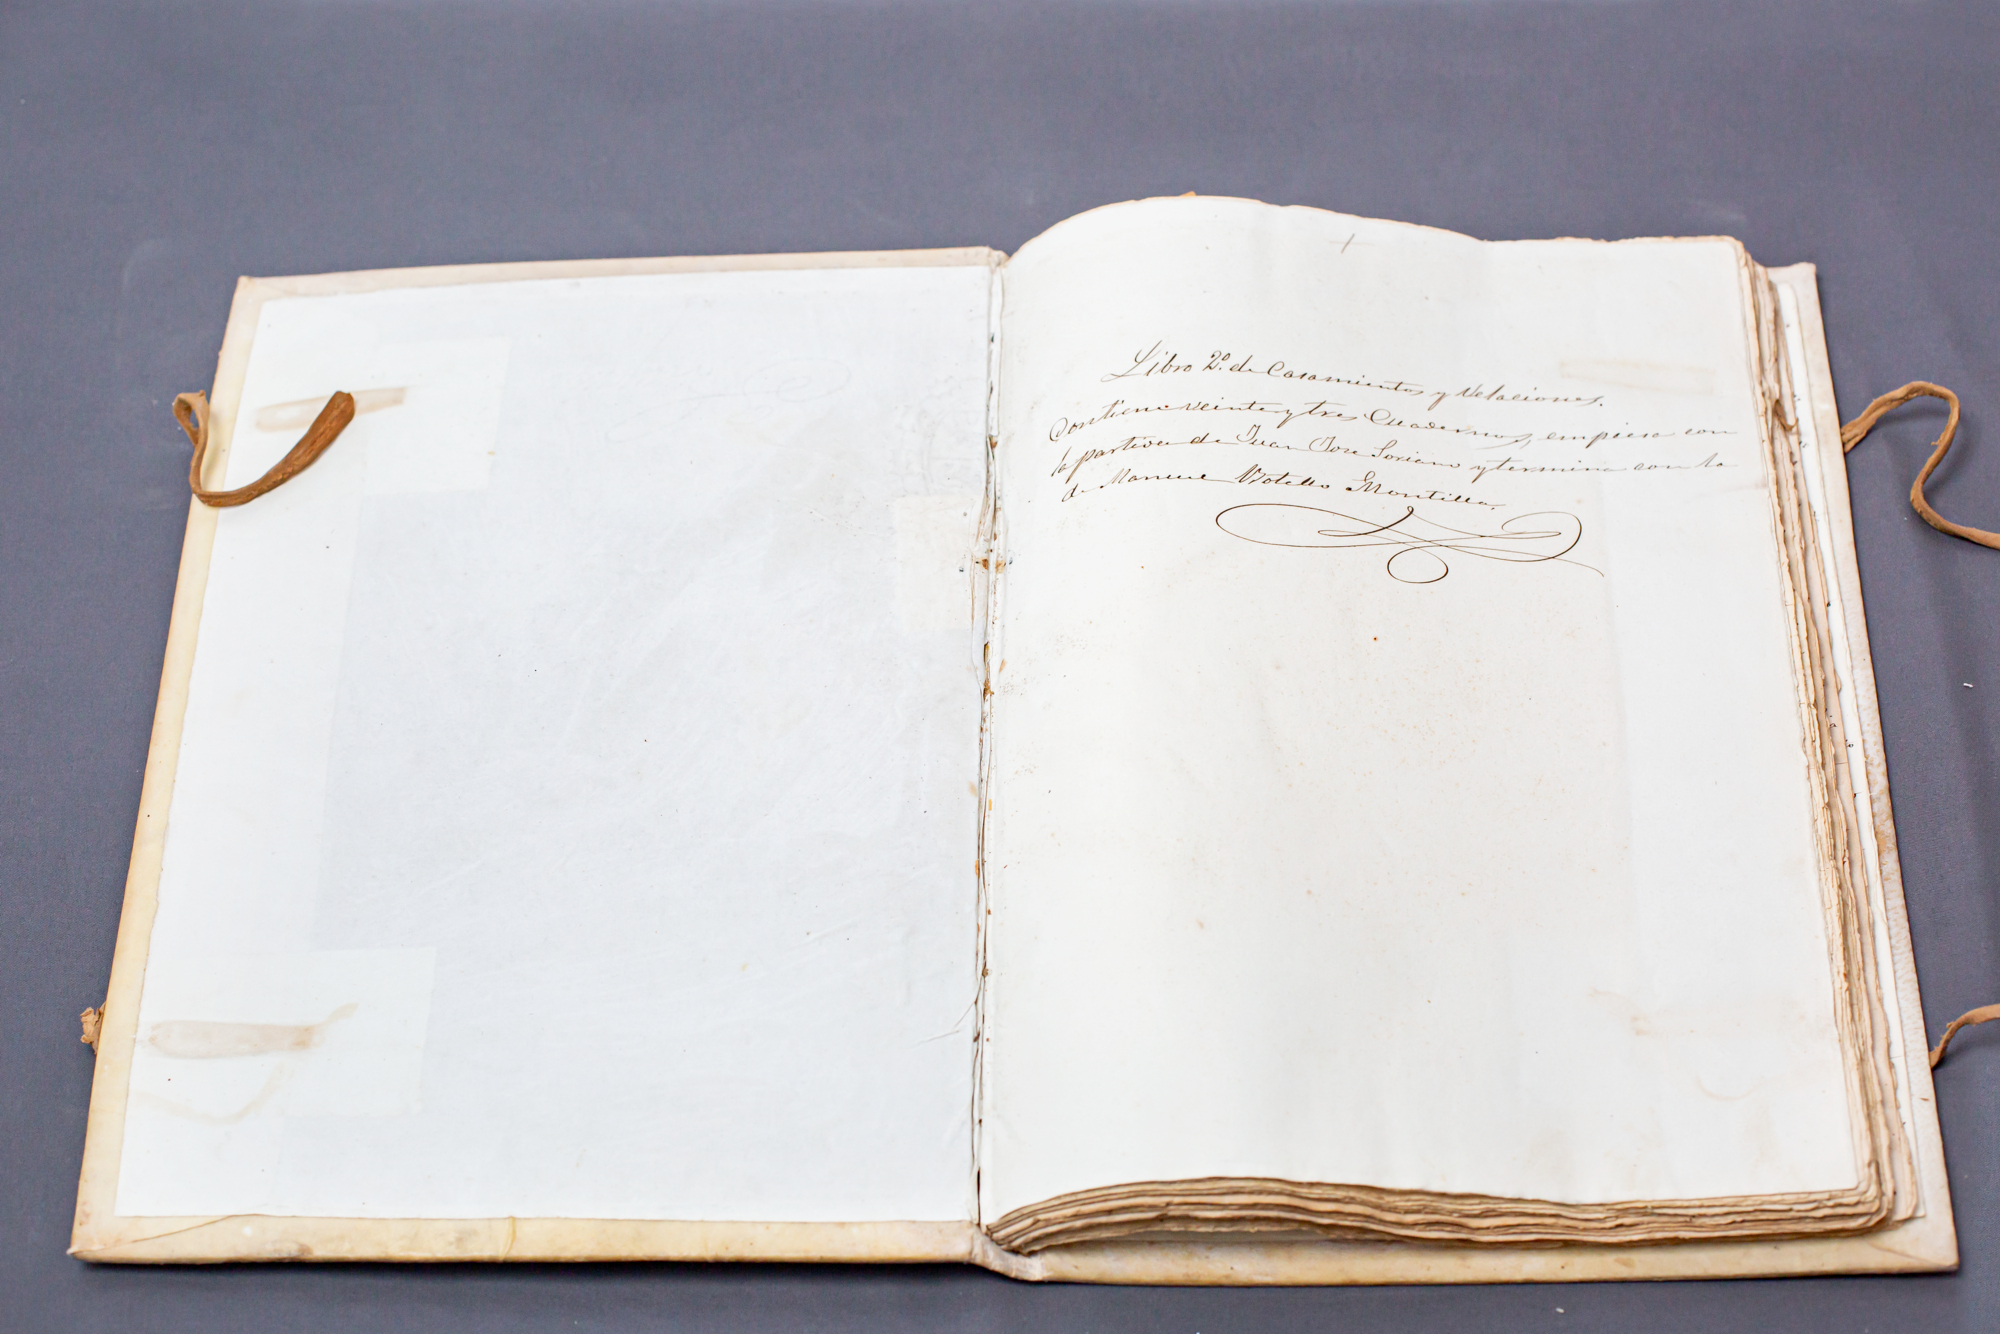 Libro 2º. de Casamientos y Velaciones.
Contiene veinte y tres Cuadernos, empiesa con
la partida de Juan Jose Soriano y termina con la
de Manuel Botello Montilla.